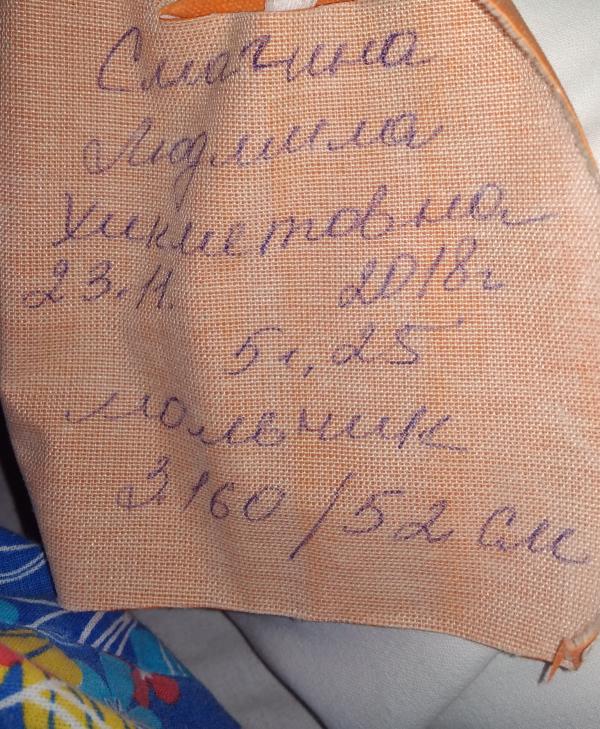 Смагина
Людмила
Хикметовна
23.11. 2018г
5ч, 25
мальчик
3,160/52 см